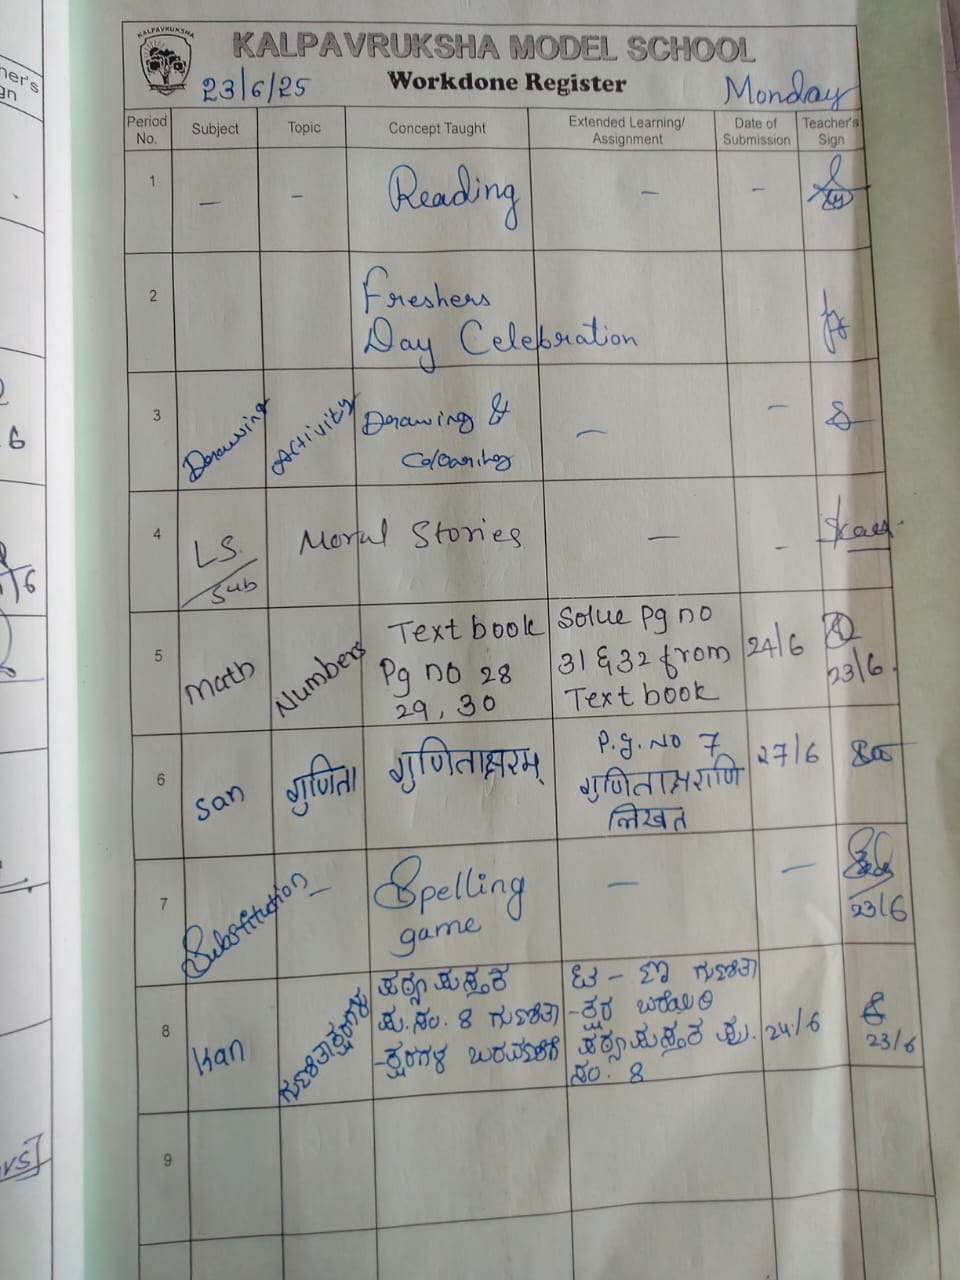 KALPAVRUKSHA
KALPAVRUKSHA MODEL SCHOOL
23/6/25 Workdone Register Monday
Period No. Subject Topic Concept Taught Extended Learning/ Assignment Date of Submission Teacher's Sign
1 — - Reading — -
2 Freshers
Day Celebration
3 Drawing Activity Drawing & — -
Colouring
4 L.S. Moral Stories — -
Sub
5 Math Numbers Text book Solve Pg no 24/6
Pg no 28 31 & 32 from 23/6
29, 30 Text book
6 San गुणिता गुणिताक्षरम् P.g. No 7 27/6
गुणिताक्षराणि
लिखत
7 Substitution — Spelling — — 23/6
game
8 Kan ಗುಣಿತಾಕ್ಷರಗಳು ಪಠ್ಯಪುಸ್ತಕ ಗುಣಿತಾ 24/6
ಪು.ಸಂ. 8 ಗುಣಿತಾ -ಕ್ಷರ ಬರೆಯಿರಿ 23/6
-ಕ್ಷರಗಳ ಪಠ್ಯಪುಸ್ತಕ ಪು.
ಸಂ. 8
9